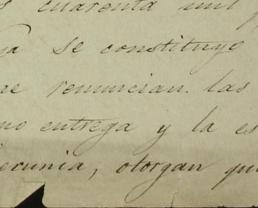 cuarenta mil
se constituye
renuncian. las
entrega y la es
ecunia, otorgan qu